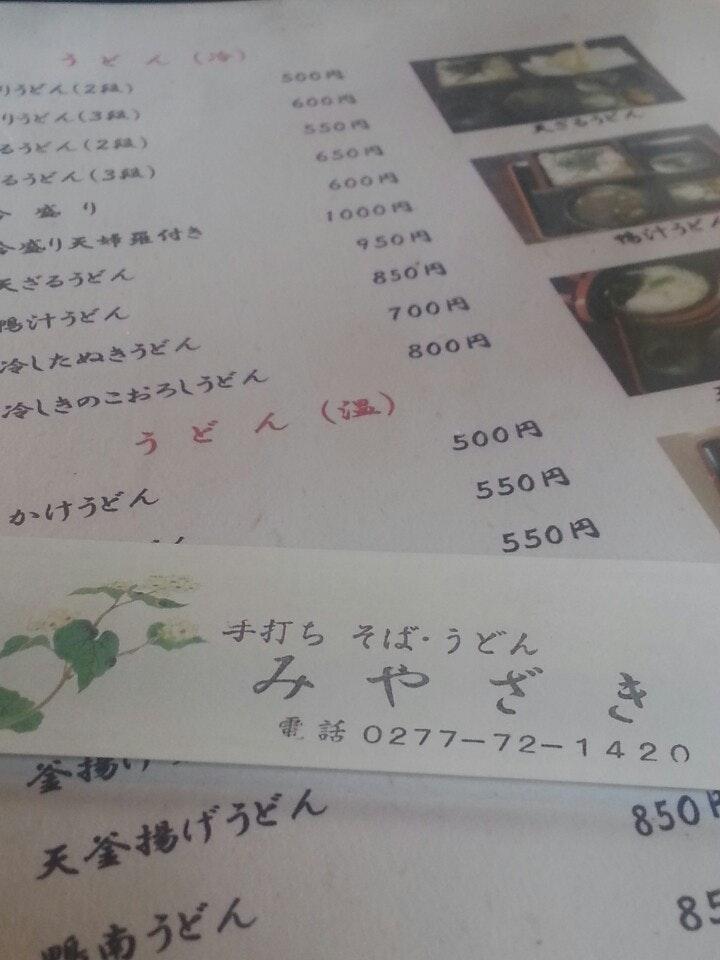 うどん(冷)
りうどん(2段) 500円
りうどん(3段) 600円
るうどん(2段) 550円
るうどん(3段) 650円
盛り 600円
盛り天婦羅付き 1000円
天ざるうどん 950円
鴨汁うどん 850円
冷したぬきうどん 700円
冷しきのこおろしうどん 800円
天ざるうどん
鴨汁うどん
うどん(温)
かけうどん 500円
550円
550円
手打ち そば・うどん
みやざき
電話 0277-72-1420
釜揚げ
天釜揚げうどん 850円
鴨南うどん 85